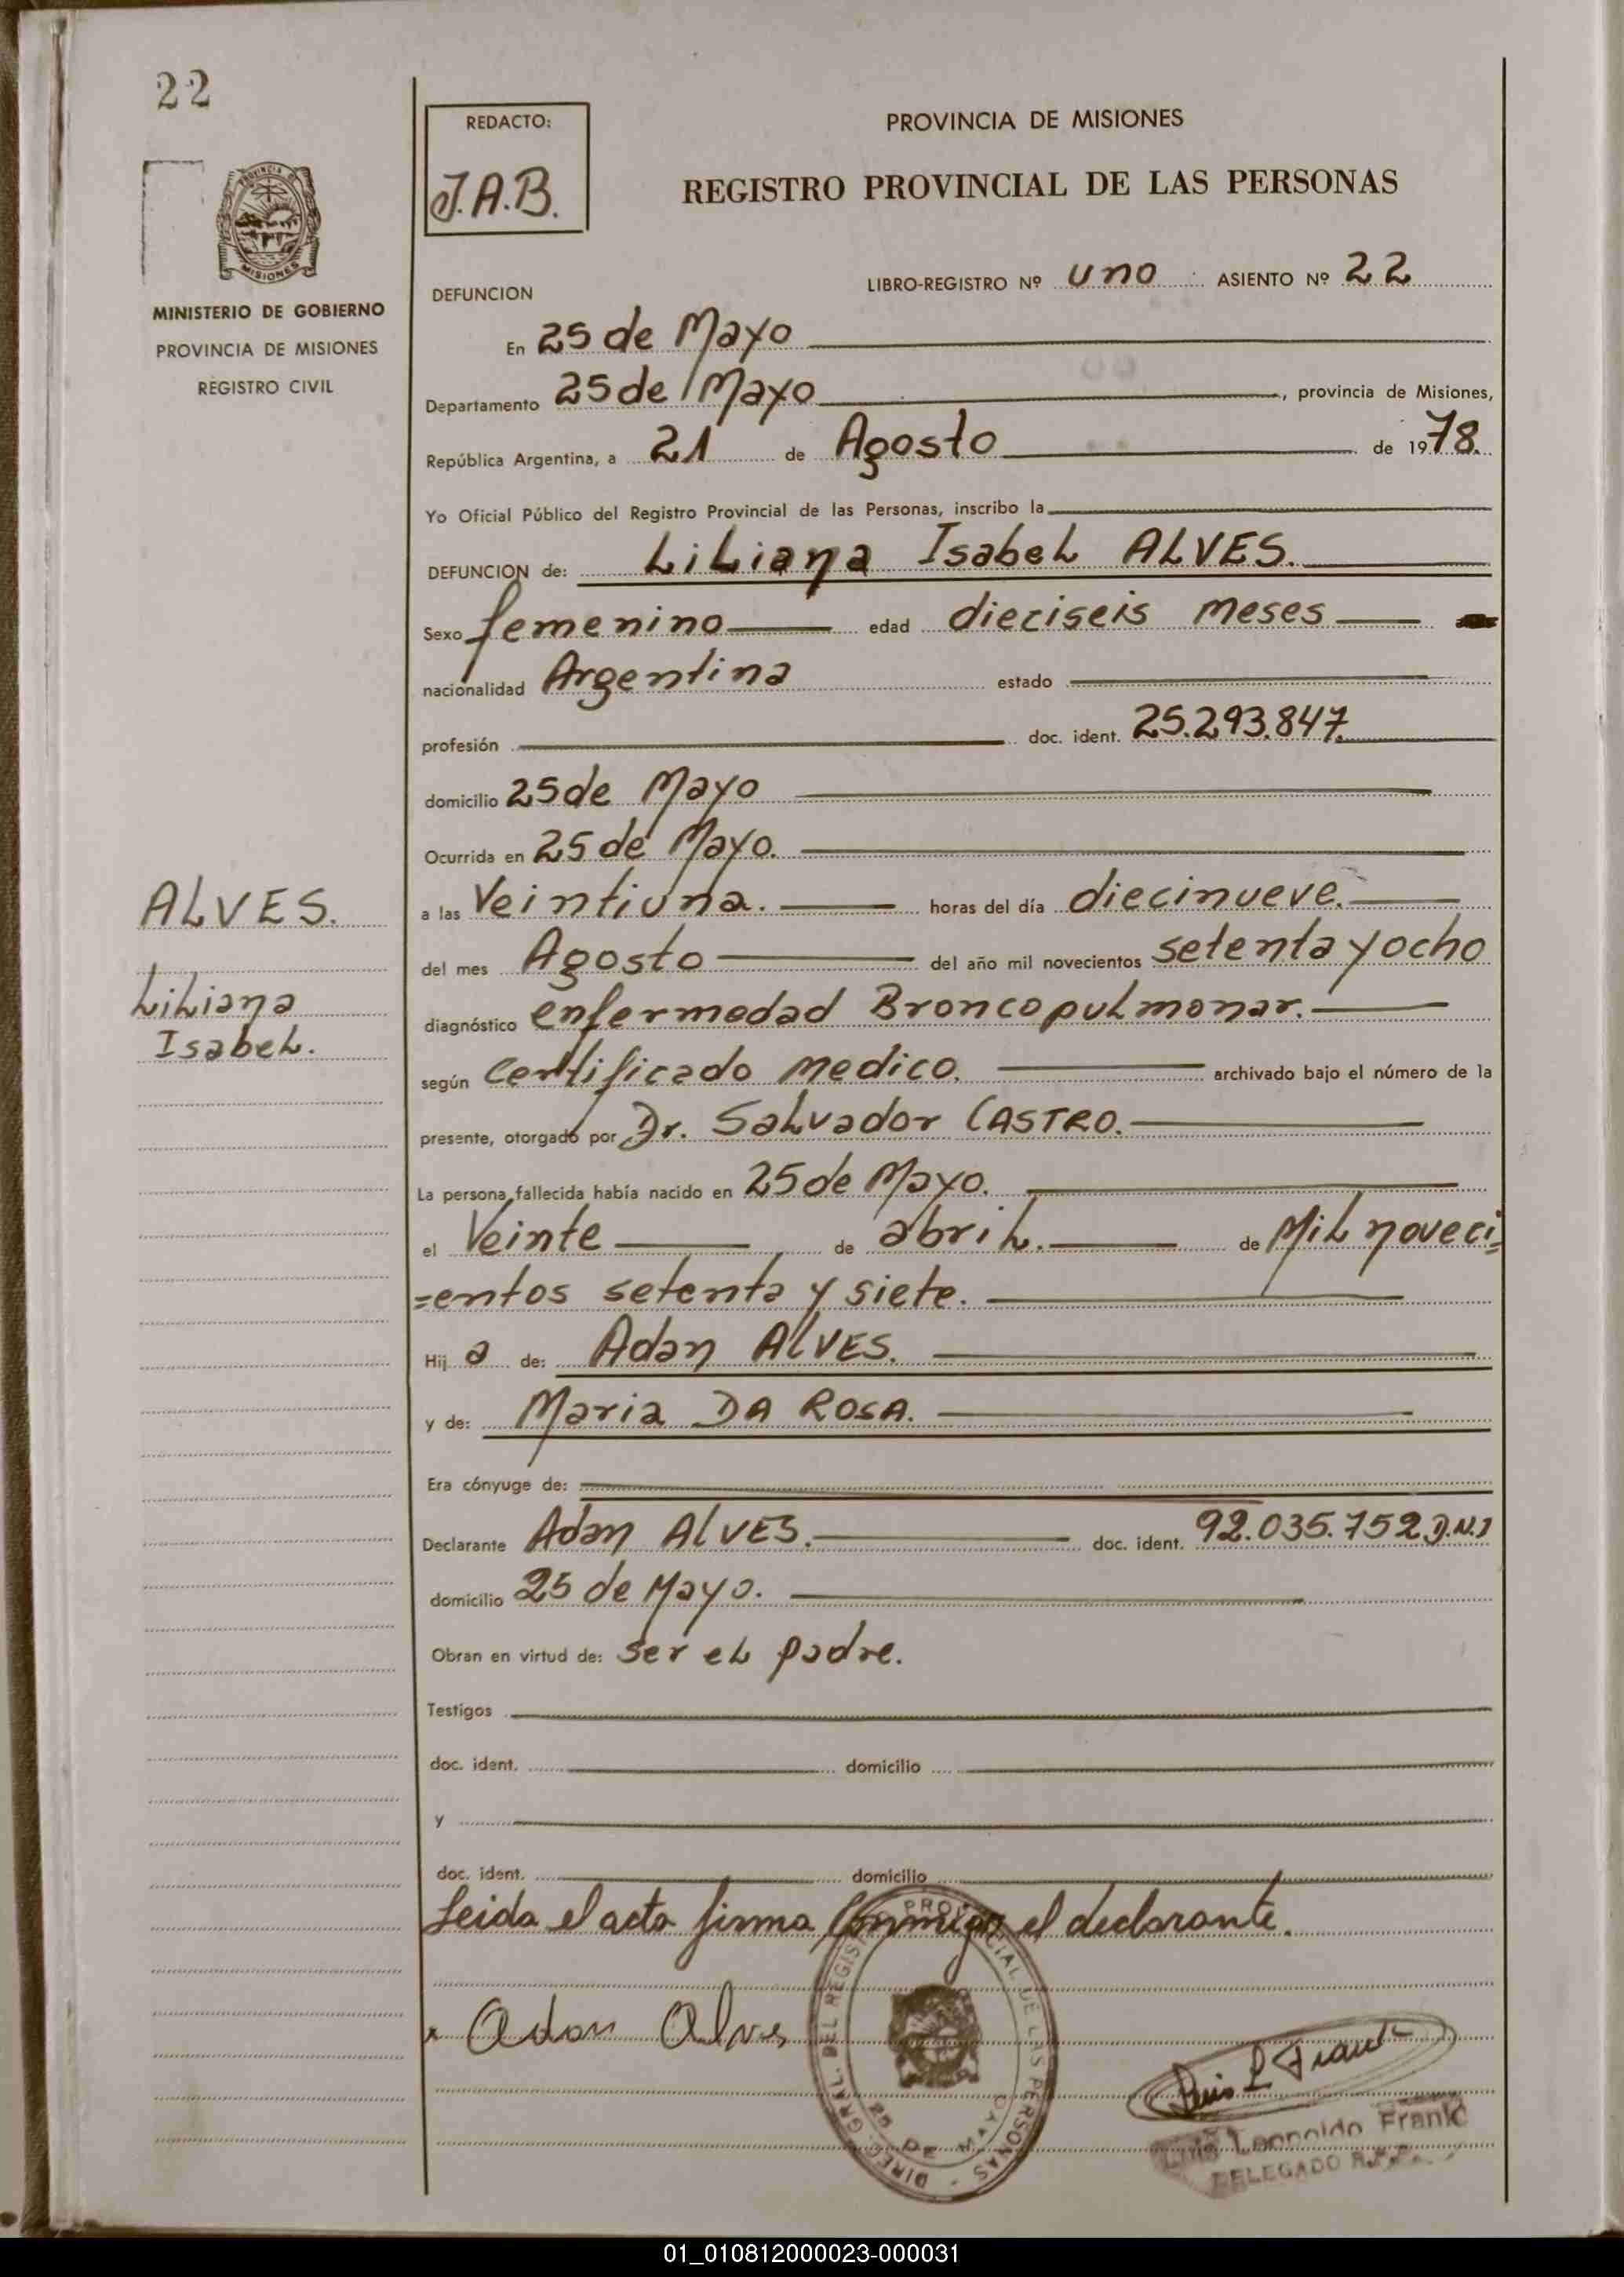 22
REDACTO:
J.A.B.
PROVINCIA DE MISIONES
REGISTRO PROVINCIAL DE LAS PERSONAS
PROVINCIA DE
MISIONES
MINISTERIO DE GOBIERNO
PROVINCIA DE MISIONES
REGISTRO CIVIL
DEFUNCION
LIBRO-REGISTRO Nº uno ASIENTO Nº 22
En 25 de Mayo
Departamento 25 de Mayo, provincia de Misiones,
República Argentina, a 21 de Agosto de 1978.
Yo Oficial Público del Registro Provincial de las Personas, inscribo la
DEFUNCION de: Liliana Isabel ALVES.
Sexo femenino edad dieciseis meses
nacionalidad Argentina estado
profesión doc. ident. 25.293.847.
domicilio 25 de Mayo
Ocurrida en 25 de Mayo.
a las Veintiuna. horas del día diecinueve.
del mes Agosto del año mil novecientos setenta y ocho
diagnóstico enfermedad Broncopulmonar.
según Certificado medico. archivado bajo el número de la
presente, otorgado por Dr. Salvador CASTRO.
La persona fallecida había nacido en 25 de Mayo.
el Veinte de abril. de Mil noveci=
=entos setenta y siete.
Hija de: Adan ALVES.
y de: Maria DA ROSA.
Era cónyuge de:
Declarante Adan ALVES. doc. ident. 92.035.752 D.N.I
domicilio 25 de Mayo.
Obran en virtud de: ser el padre.
Testigos
doc. ident. domicilio
y
doc. ident. domicilio
Leida el acta firma Conmigo el declarante.
x Adan Alves
ALVES.
Liliana
Isabel.
DIREC. GRAL. DEL REGISTRO PROVINCIAL DE LAS PERSONAS -
25 DE MAYO
Luis L Frank
Luis Leopoldo Frank
DELEGADO R.P.P.
01_010812000023-000031